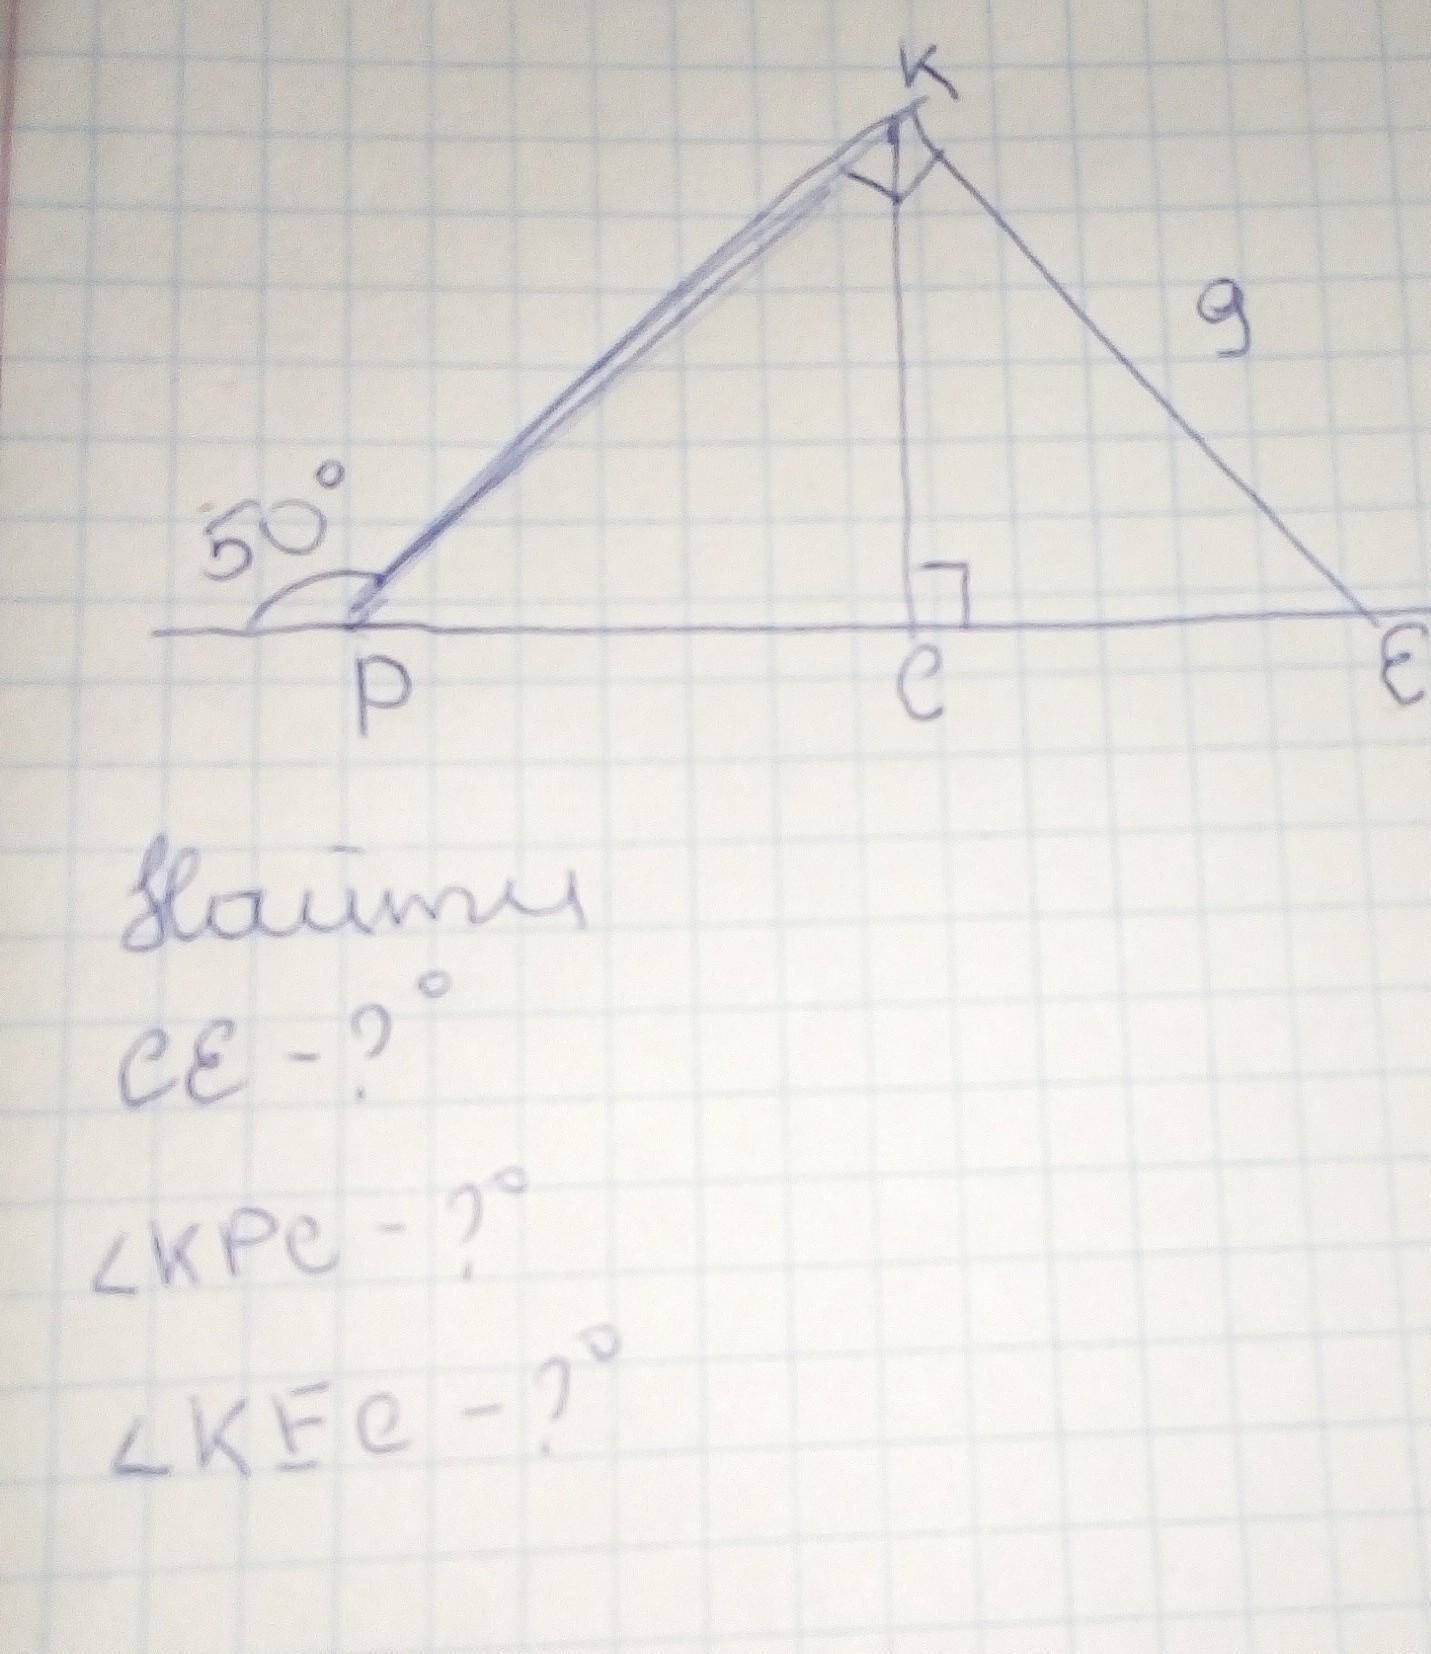 K
9
50°
P
C
E
Найти
CE - ?°
<KPC - ?°
<KEC - ?°